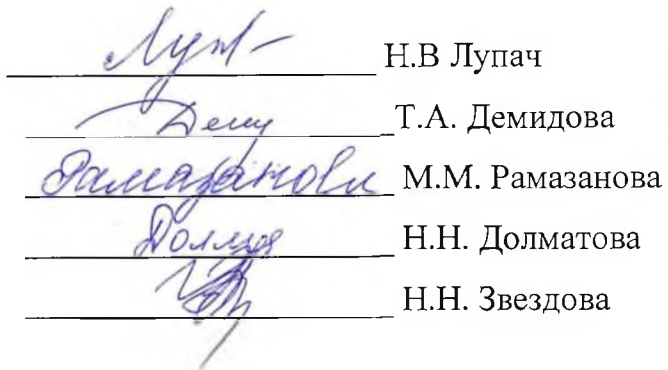 Н.В Лупач
Т.А. Демидова
Рамазанова М.М. Рамазанова
Н.Н. Долматова
Н.Н. Звездова